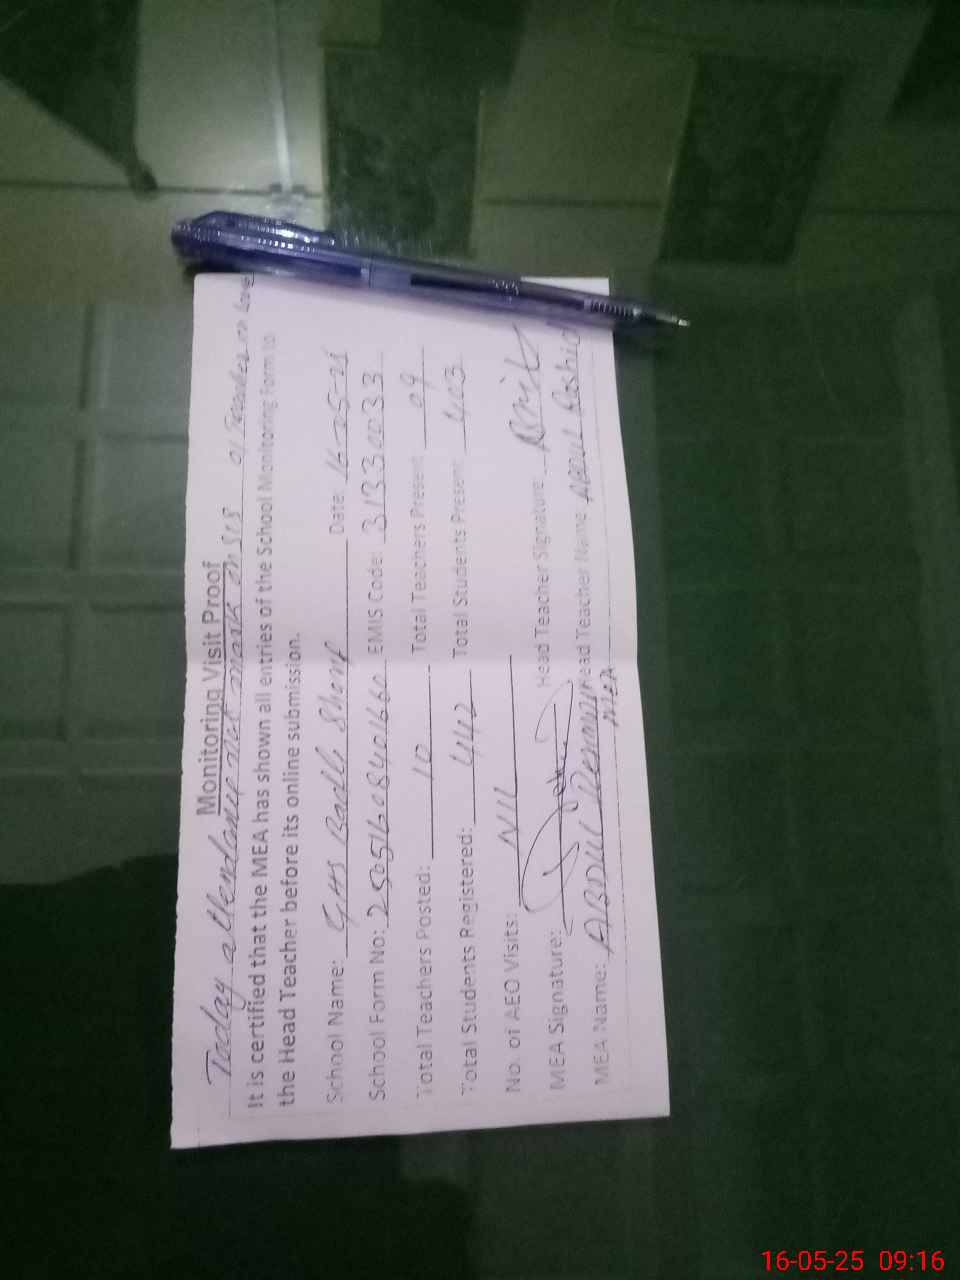 Monitoring Visit Proof
Today attendance not mark on SIS 01 Teacher on Leave
It is certified that the MEA has shown all entries of the School Monitoring Form to
the Head Teacher before its online submission.
School Name: GHS Badli Sharif Date: 16-05-25
School Form No: EMIS Code: 31330033
Total Teachers Posted: 10 Total Teachers Present 09
Total Students Registered: 442 Total Students Present 403
No. of AEO Visits: Nil
MEA Signature: Head Teacher Signature:
MEA Name: ABDUL Rehman Head Teacher Name: Abdul Rashid
MEA
16-05-25 09:16